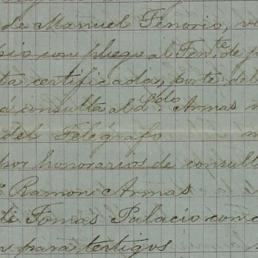 de Manuel Tenorio, v
con pliego al Fon.te de p
ta certificadas, porte del
consulta al d.r pblo Armas
del Telégrafo
por honorarios de consulta
Ramon Armas
Tomas Palacio como
para testigos